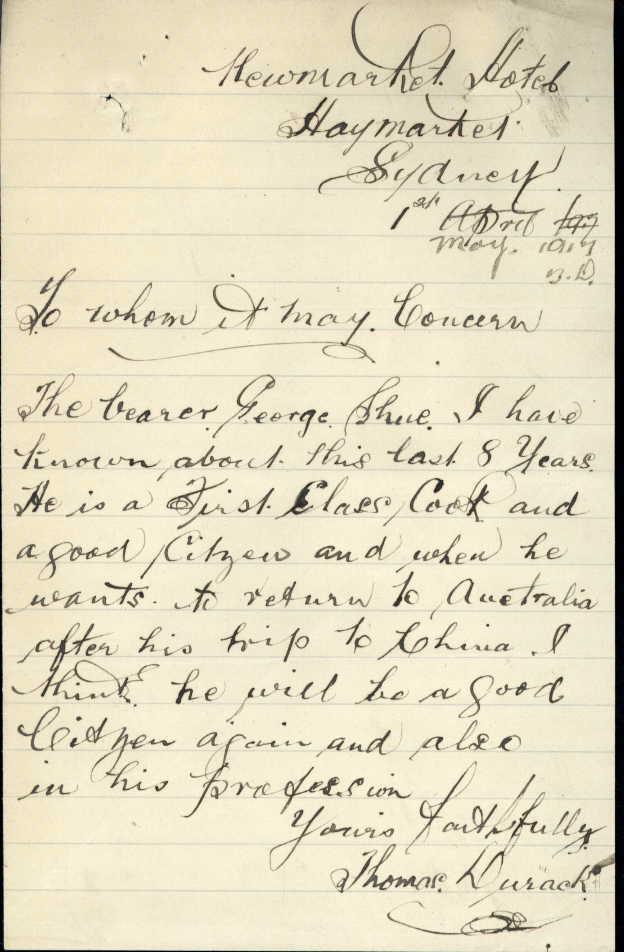 Newmarket Hotel
Haymarket
Sydney
1st April 1917
May. 1917
To whom it may. Concern
The bearer. George. Shue. I have
known about this last 8 Years.
He is a First Class Cook and
a good Citzen and when he
wants. to return to Australia
after his trip to China. I
think he will be a good
Citzen again and also
in his profession
Yours faithfully
Thomas. Durack.